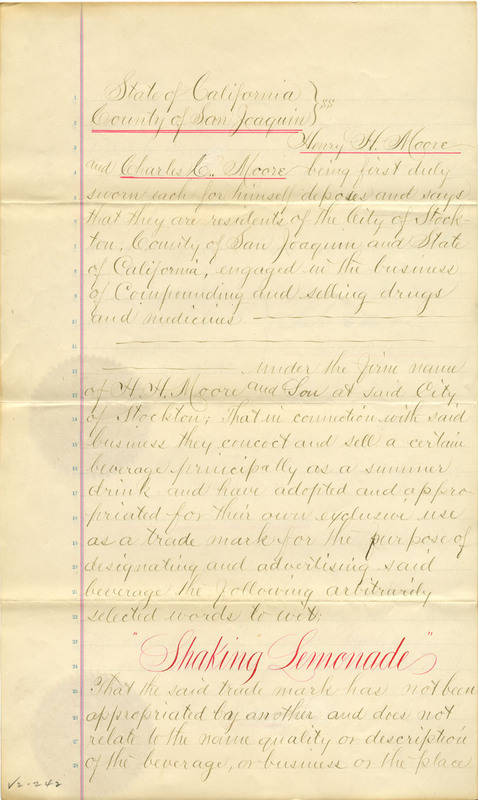 State of California } ss
County of San Joaquin }
Henry H. Moore
and Charles C. Moore being first duly
sworn each for himself deposes and says
that they are residents of the City of Stock-
ton, County of San Joaquin and State
of California, engaged in the business
of Compounding and selling drugs
and medicines
under the firm name
of H. H. Moore and Son at said City
of Stockton; That in connection with said
business they concoct and sell a certain
beverage principally as a summer
drink and have adopted and appro-
priated for their own exclusive use
as a trade mark for the purpose of
designating and advertising said
beverage the following arbitrarily
selected words to wit;
"Shaking Lemonade"
That the said trade mark has not been
appropriated by another and does not
relate to the name quality or description
of the beverage, or business or the place
V2-242